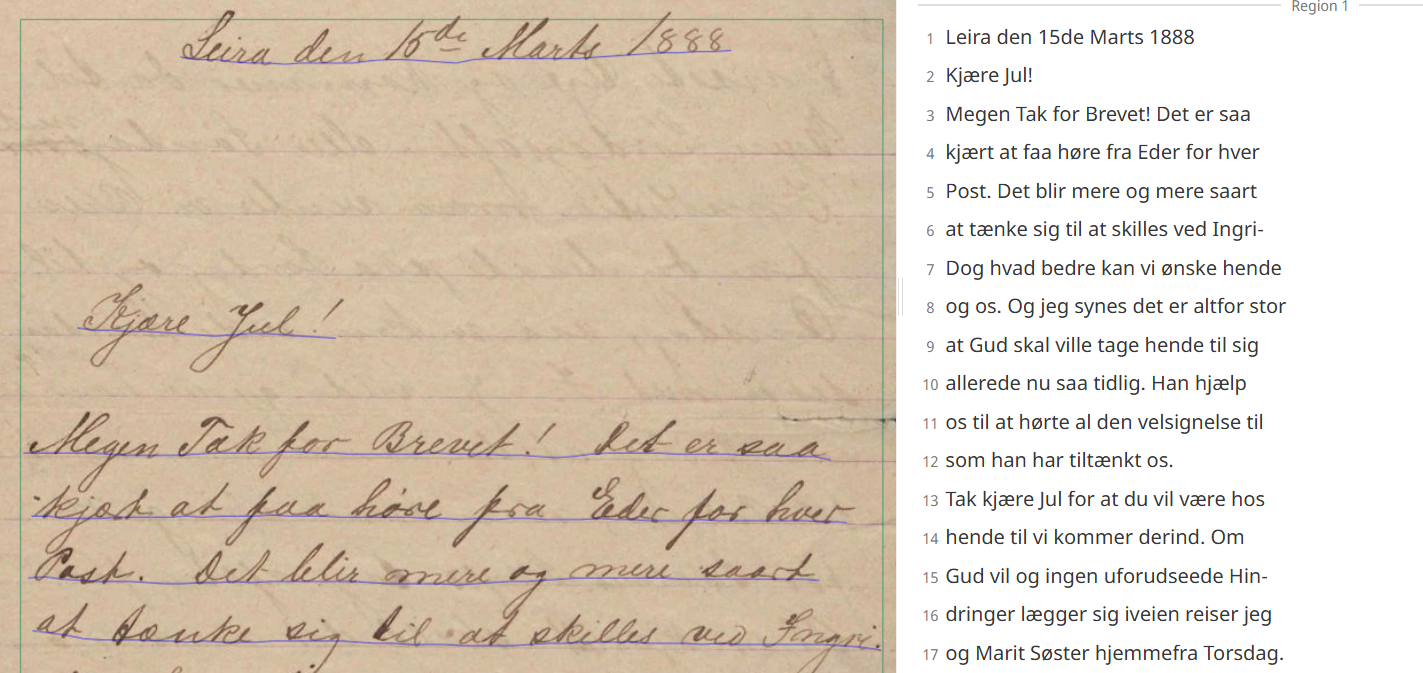 Leira den 15de Marts 1888
Kjære Jul!
Megen Tak for Brevet! Det er saa
kjært at faa høre fra Eder for hver
Post. Det blir mere og mere saart
at tænke sig til at skilles ved Ingri.
Region 1
1 Leira den 15de Marts 1888
2 Kjære Jul!
3 Megen Tak for Brevet! Det er saa
4 kjært at faa høre fra Eder for hver
5 Post. Det blir mere og mere saart
6 at tænke sig til at skilles ved Ingri-
7 Dog hvad bedre kan vi ønske hende
8 og os. Og jeg synes det er altfor stor
9 at Gud skal ville tage hende til sig
10 allerede nu saa tidlig. Han hjælp
11 os til at hørte al den velsignelse til
12 som han har tiltænkt os.
13 Tak kjære Jul for at du vil være hos
14 hende til vi kommer derind. Om
15 Gud vil og ingen uforudseede Hin-
16 dringer lægger sig iveien reiser jeg
17 og Marit Søster hjemmefra Torsdag.